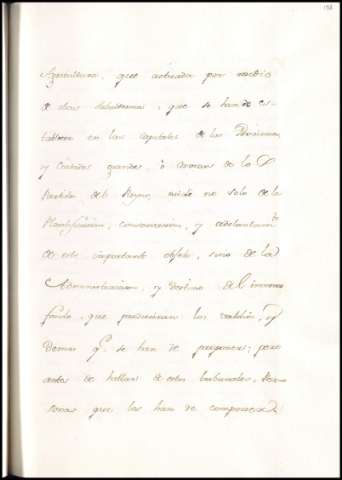 Agricultura, que actuada por medio
de otras subalternas, que se han de es-
tablecer en las capitales de las Provincias,
y Ciudades grandes, ò de los
Partidos del Reyno, cuide no solo de la
Plantificacion, conservacion, y adelantam.to
de este importante objeto, sino de la
Administracion, y destino del inmenso
fondo, que produciran los valdios, y
Demas q.e se han de proponer; pero
antes de hablar de estos tribunales, Per-
sonas que los han de componer